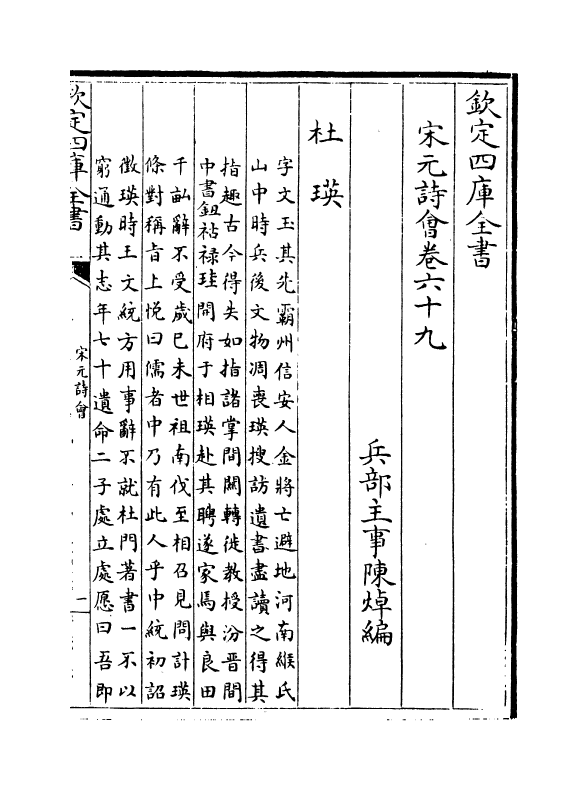 欽定四庫全書
宋元詩會卷六十九
兵部主事陳焯編
杜瑛
字文玉其先霸州信安人金將亡避地河南緱氏
山中時兵後文物凋喪瑛搜訪遺書盡讀之得其
指趣古今得失如指諸掌間關轉徙教授汾晉間
中書鈕祜禄珪開府于相瑛赴其聘遂家焉與良田
千畝辭不受歲己未世祖南伐至相召見問計瑛
條對稱旨上悦曰儒者中乃有此人乎中統初詔
徵瑛時王文統方用事辭不就杜門著書一不以
窮通動其志年七十遺命二子處立處愿曰吾即
欽定四庫全書
宋元詩會
一